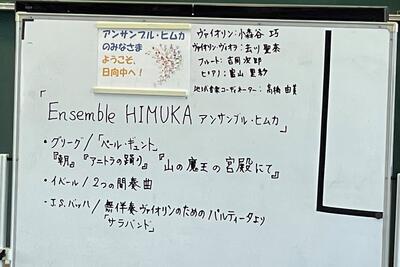 アンサンブル・ヒムカ
のみなさま
ようこそ、
日向中へ!
ヴァイオリン:小森谷 巧
ヴァイオリン・ヴィオラ:玄川 聖奈
フルート:吉岡 次郎
ピアノ:富山 里紗
地域音楽コーディネーター:高橋 由美
「Ensemble HIMUKA アンサンブル・ヒムカ」
・グリーグ/「ペール・ギュント」
『朝』『アニトラの踊り』『山の魔王の宮殿にて』
・イベール/2つの間奏曲
・J.S.バッハ/無伴奏ヴァイオリンのためのパルティータより
「サラバンド」